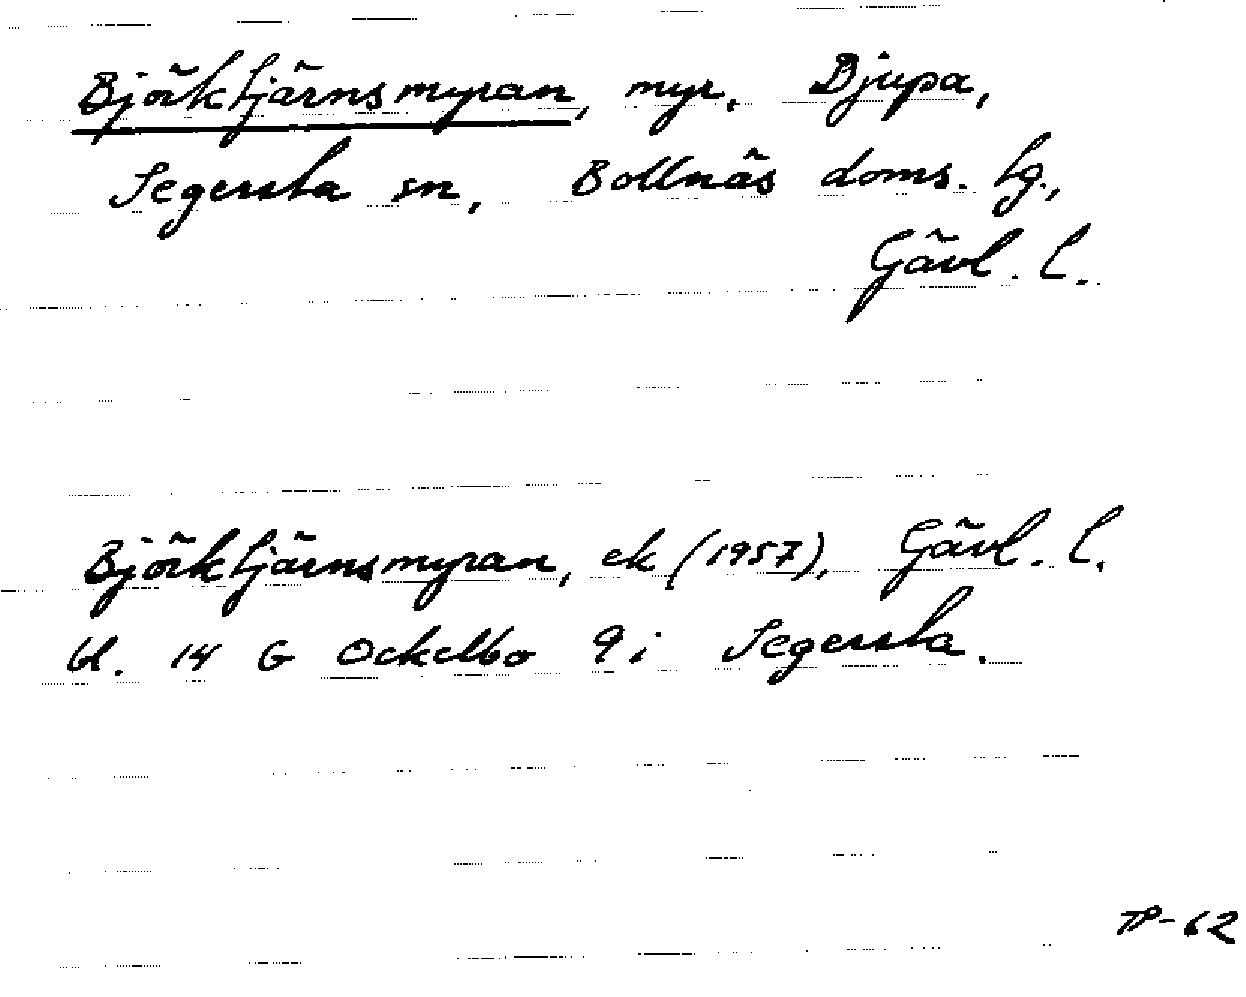 Björktjärnsmyran, myr, Djupa,
Segersta sn, Bollnäs doms. tg.,
Gävl. l.
Björktjärnsmyran, ek (1957), Gävl. l.
bl. 14 G Ockelbo 9 i Segersta.
TP-62